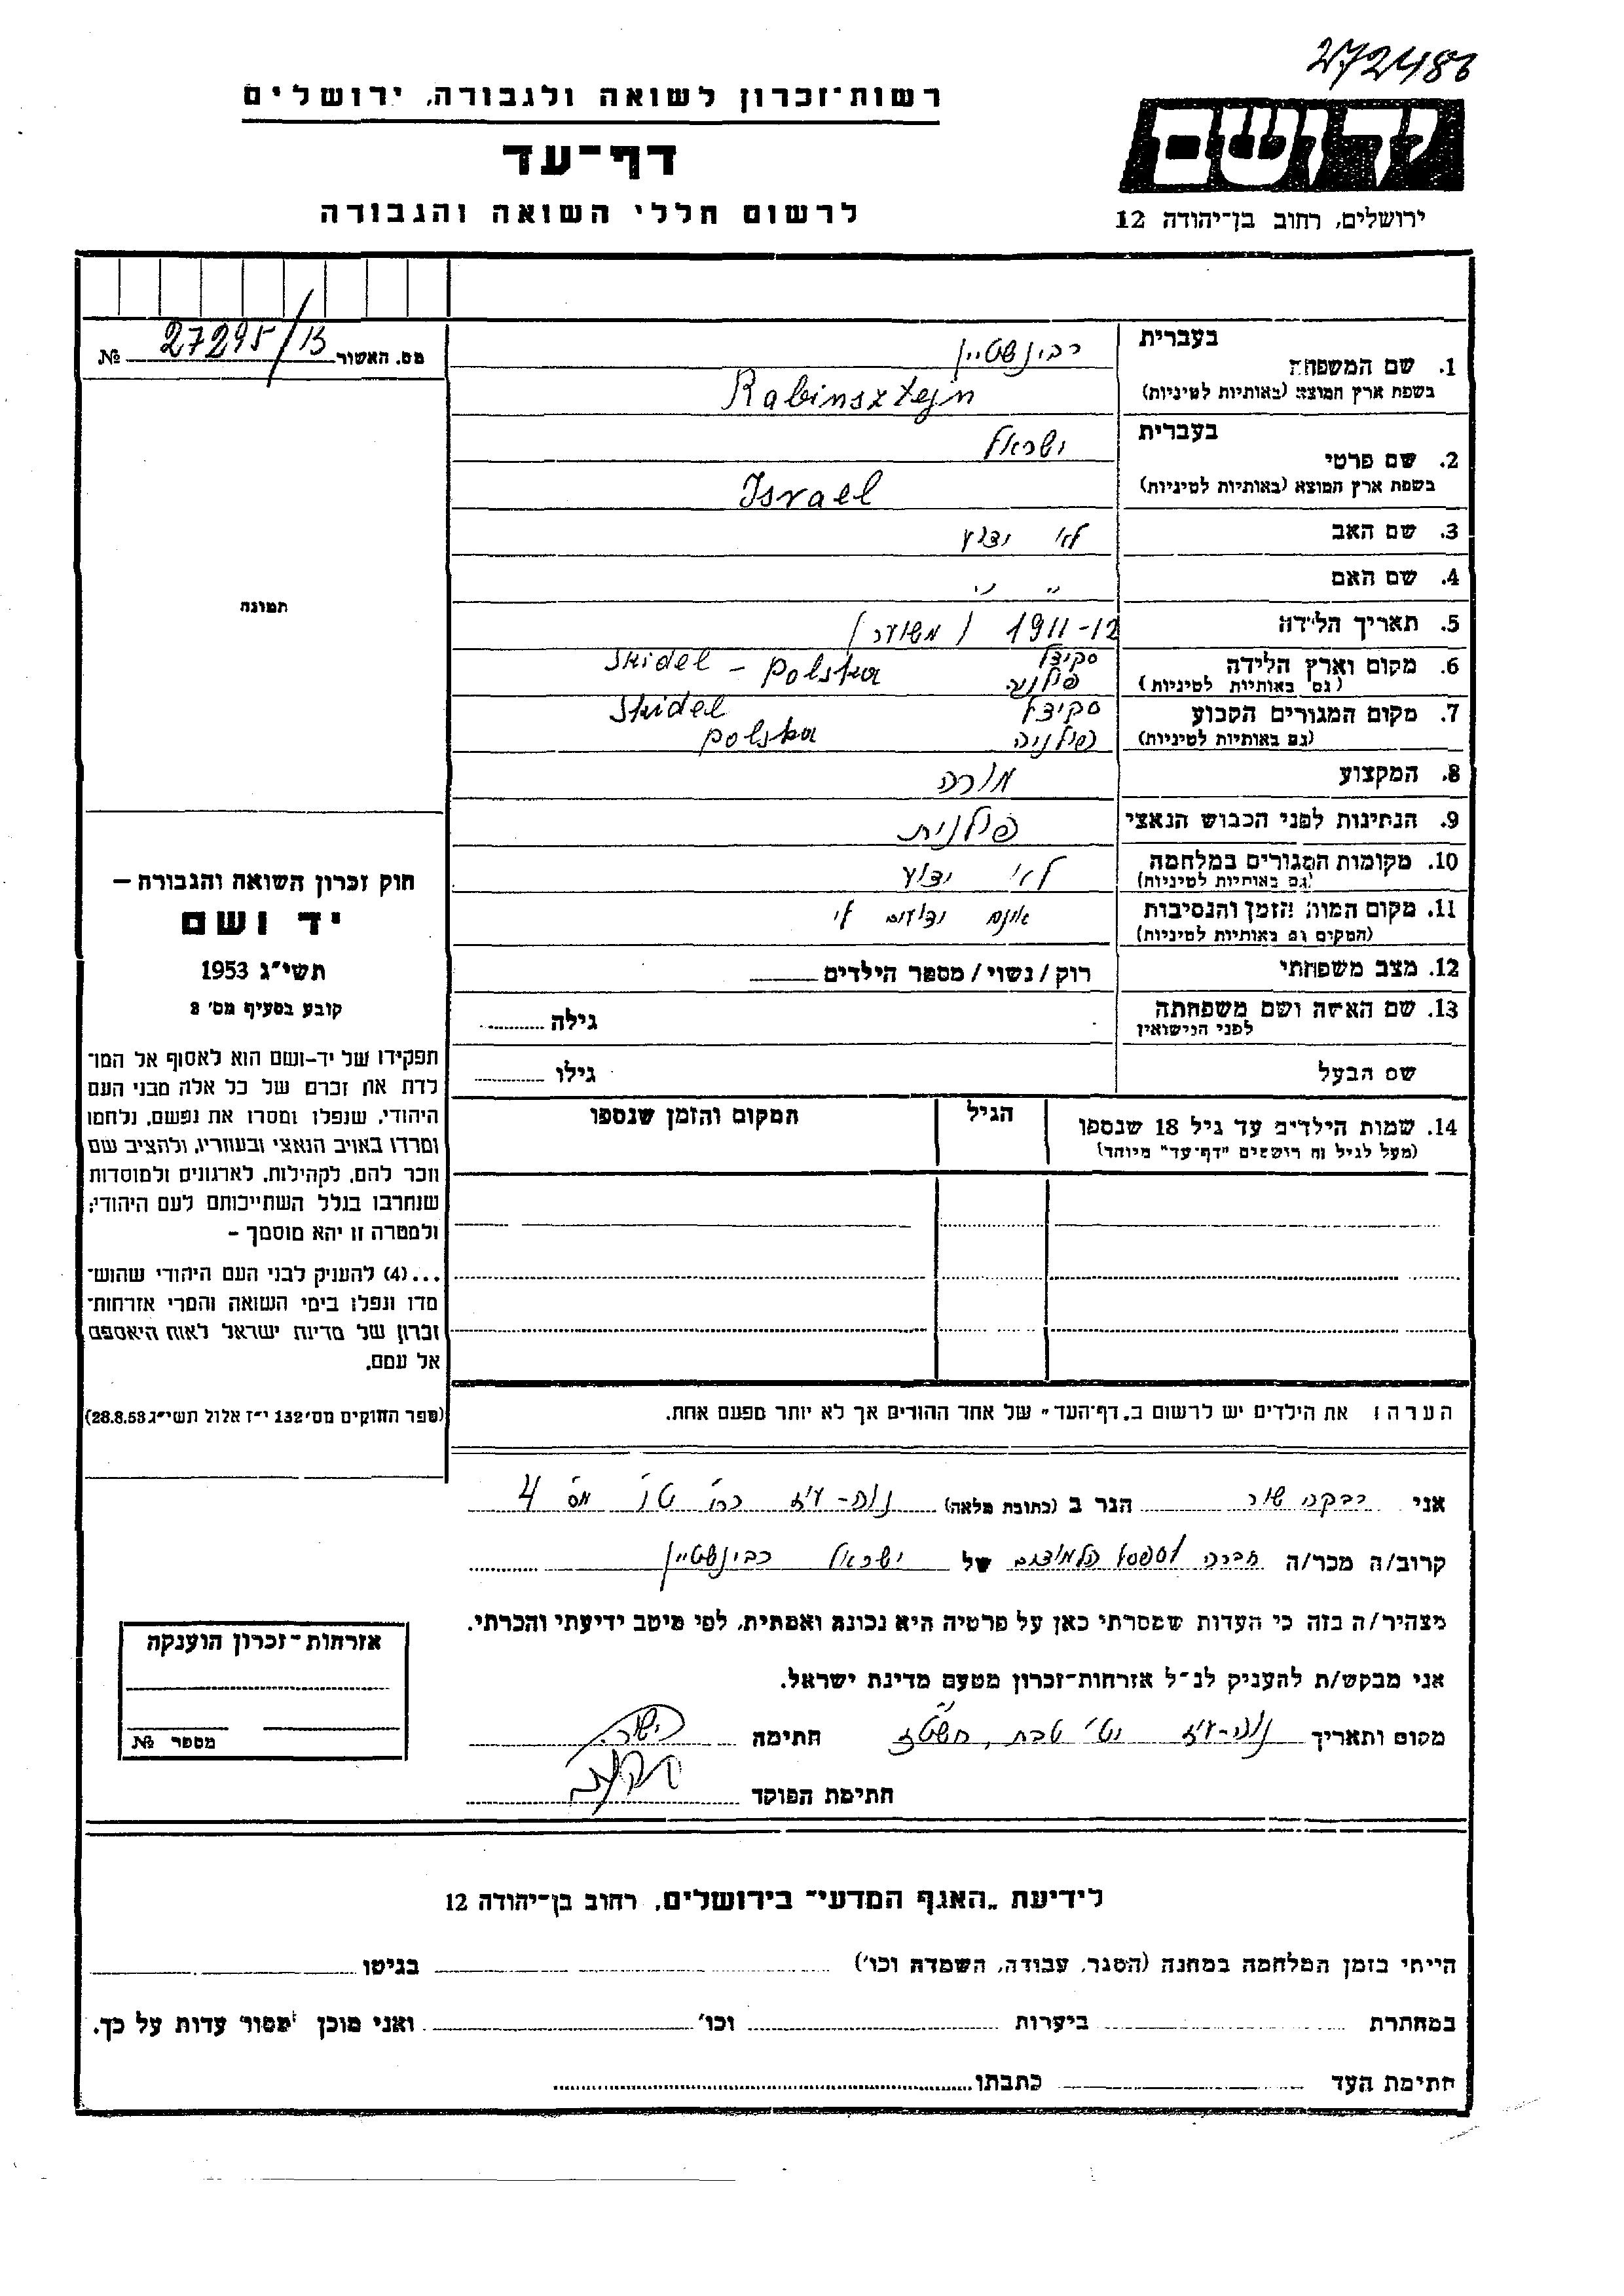 272486
רשות־זכרון לשואה ולגבורה, ירושלים
דף־עד
לרשום חללי השואה והגבורה
יד ושם
ירושלים, רחוב בן־יהודה 12
מס. האשור 27295/13 №
תמונה
בעברית רבינשטיין
1. שם המשפחה
בשפת ארץ המוצא (באותיות לטיניות) Rabinsztejn
בעברית ישראל
2. שם פרטי
בשפת ארץ המוצא (באותיות לטיניות) Israel
3. שם האב לא ידוע
4. שם האם " "
5. תאריך הלידה 1911-12 (משוער)
6. מקום וארץ הלידה סקידל Skidel - Polska
(גם באותיות לטיניות) פולניה
7. מקום המגורים הקבוע סקידל Skidel
(גם באותיות לטיניות) פולניה Polska
8. המקצוע מורה
9. הנתינות לפני הכבוש הנאצי פולנית
10. מקומות המגורים במלחמה לא ידוע
(גם באותיות לטיניות)
11. מקום המות הזמן והנסיבות אינם ידועים לי
(המקום גם באותיות לטיניות)
12. מצב משפחתי רוק / נשוי / מספר הילדים
13. שם האשה ושם משפחתה גילה
לפני הנישואין
שם הבעל גילו
14. שמות הילדים עד גיל 18 שנספו הגיל המקום והזמן שנספו
(מעל לגיל זה רושמים "דף־עד" מיוחד)
חוק זכרון השואה והגבורה –
יד ושם
תשי"ג 1953
קובע בסעיף מס' 2
תפקידו של יד-ושם הוא לאסוף אל המו־
לדת את זכרם של כל אלה מבני העם
היהודי, שנפלו ומסרו את נפשם, נלחמו
ומרדו באויב הנאצי ובעוזריו, ולהציב שם
וזכר להם, לקהילות, לארגונים ולמוסדות
שנחרבו בגלל השתייכותם לעם היהודי;
ולמטרה זו יהא מוסמך –
...(4) להעניק לבני העם היהודי שהוש־
מדו ונפלו בימי השואה והמרי אזרחות־
זכרון של מדינת ישראל לאות היאספם
אל עמם.
(ספר החוקים מס' 132 י"ז אלול תשי"ג 28.8.53)
הערה: את הילדים יש לרשום ב„דף־העד" של אחד ההורים אך לא יותר מפעם אחת.
אני רבקה שור הגר ב (כתובת מלאה) נוה-עוז מס 4
קרוב/ה מכר/ה חברה של ישראל רבינשטיין
מצהיר/ה בזה כי העדות שמסרתי כאן על פרטיה היא נכונה ואמתית, לפי מיטב ידיעתי והכרתי.
אני מבקש/ת להעניק לנ"ל אזרחות־זכרון מטעם מדינת ישראל.
מקום ותאריך נוה-עוז טבת, חתימה
חתימת הפוקד
אזרחות־זכרון הוענקה
מספר №
לידיעת „האגף המדעי" בירושלים, רחוב בן־יהודה 12
הייתי בזמן המלחמה במחנה (הסגר, עבודה, השמדה וכו') בגיטו
במחתרת ביערות וכו' ואני מוכן למסור עדות על כך.
חתימת העד כתבתו